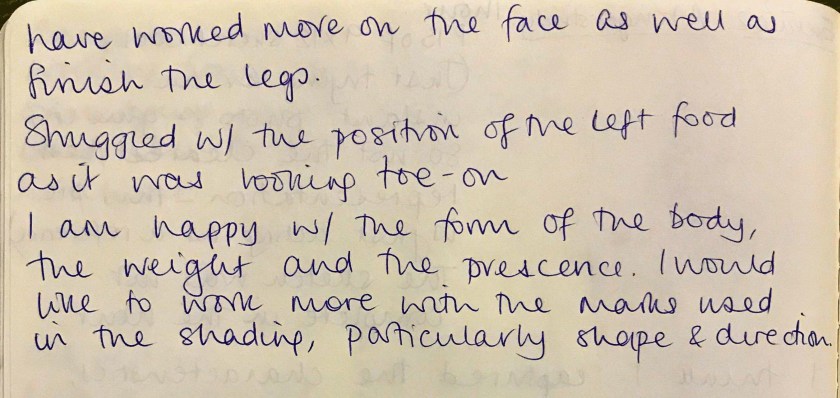 have worked more on the face as well as
finish the legs.
Struggled w/ the position of the left food
as it was looking toe-on
I am happy w/ the form of the body,
the weight and the prescence. I would
like to work more with the marks used
in the shading, particularly shape & direction.